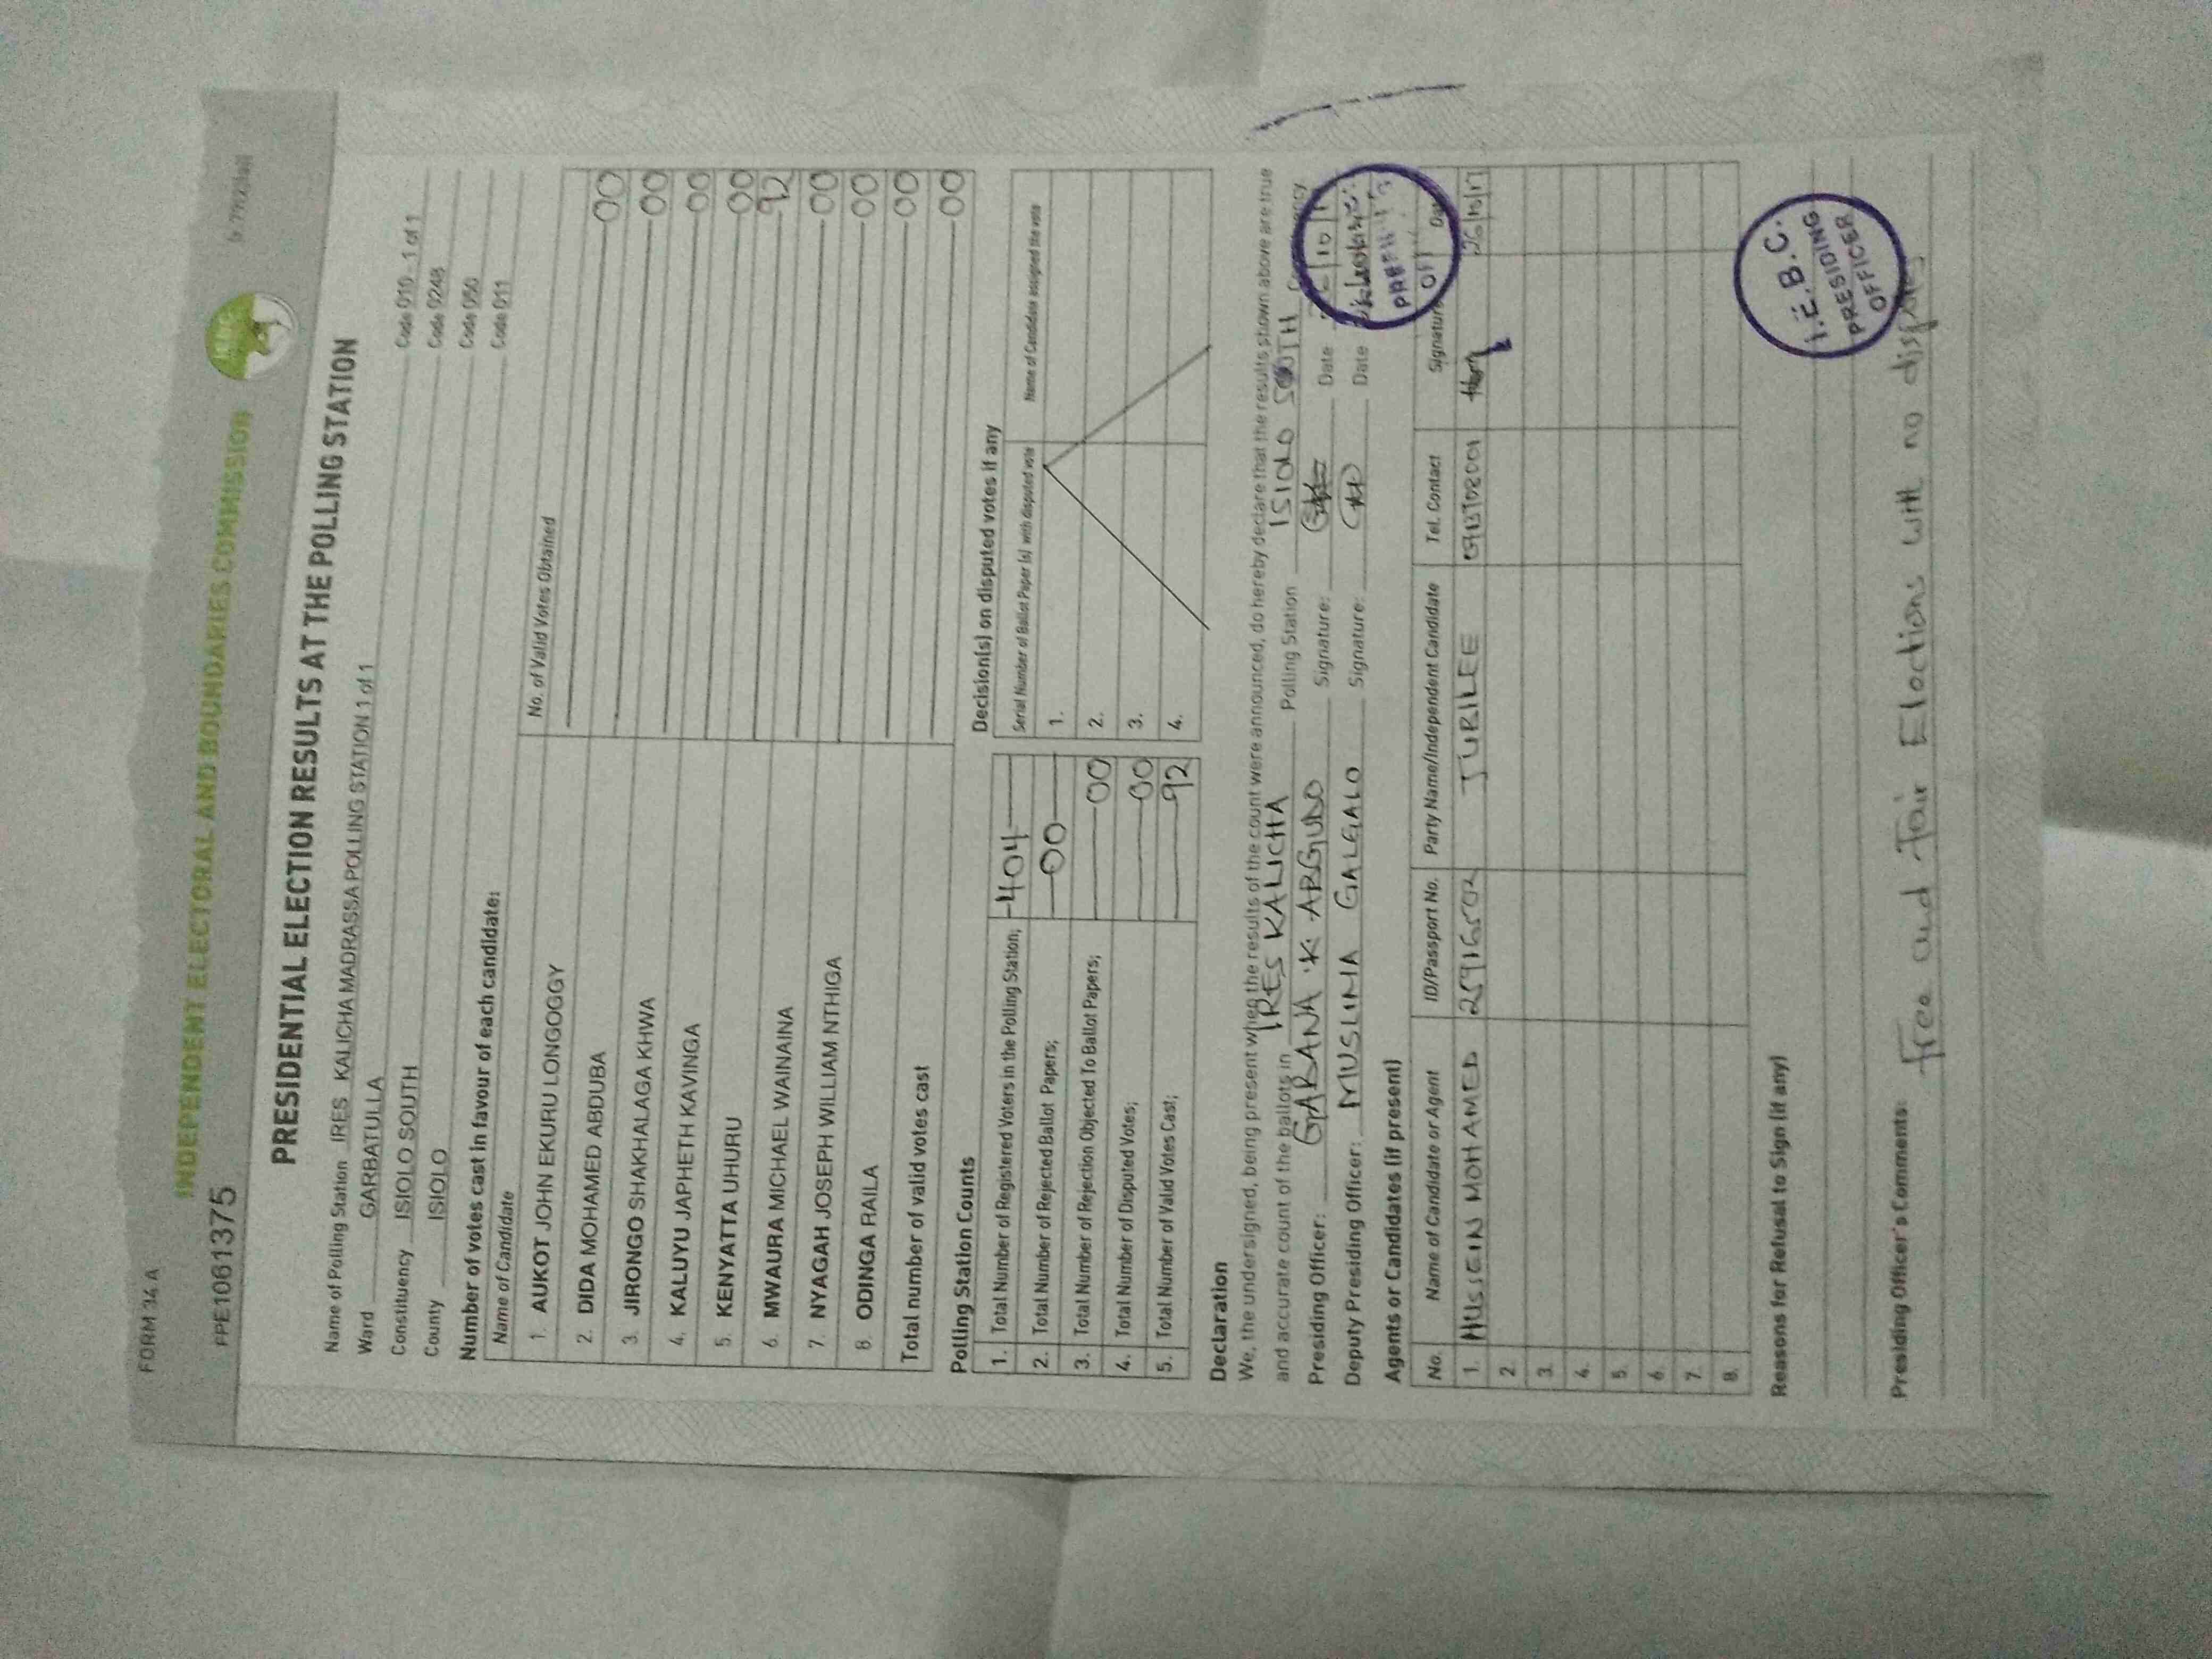 FORM 34 A
FPE1061375
INDEPENDENT ELECTORAL AND BOUNDARIES COMMISSION
PRESIDENTIAL ELECTION RESULTS AT THE POLLING STATION
Name of Polling Station IRES KALICHA MADRASSA POLLING STATION 1 of 1 Code 010 1 of 1
Ward GARBATULLA Code 0248
Constituency ISIOLO SOUTH Code 050
County ISIOLO Code 011
Number of votes cast in favour of each candidate:
Name of Candidate No. of Valid Votes Obtained
1. AUKOT JOHN EKURU LONGOGGY 00
2. DIDA MOHAMED ABDUBA 00
3. JIRONGO SHAKHALAGA KHWA 00
4. KALUYU JAPHETH KAVINGA 00
5. KENYATTA UHURU 92
6. MWAURA MICHAEL WAINAINA 00
7. NYAGAH JOSEPH WILLIAM NTHIGA 00
8. ODINGA RAILA 00
Total number of valid votes cast 00
Polling Station Counts
1. Total Number of Registered Voters in the Polling Station; 404
2. Total Number of Rejected Ballot Papers; 00
3. Total Number of Rejection Objected To Ballot Papers; 00
4. Total Number of Disputed Votes; 00
5. Total Number of Valid Votes Cast; 92
Decision(s) on disputed votes if any
Serial Number of Ballot Paper (s) with disputed vote Name of Candidate assigned the vote
1.
2.
3.
4.
Declaration
We, the undersigned, being present when the results of the count were announced, do hereby declare that the results shown above are true
and accurate count of the ballots in IRES KALICHA Polling Station ISIOLO SOUTH
Presiding Officer: GARANA K. ARGUDO Signature: Date
Deputy Presiding Officer: MUSLIMA GALGALO Signature: Date
Agents or Candidates (if present)
No. Name of Candidate or Agent ID/Passport No. Party Name/Independent Candidate Tel. Contact Signature Date
1. HUSSEIN MOHAMED JUBILEE 26/10/17
2.
3.
4.
5.
6.
7.
8.
Reasons for Refusal to Sign (if any)
I.E.B.C.
PRESIDING
OFFICER
Presiding Officer's Comments: Free and Fair Elections with no disputes